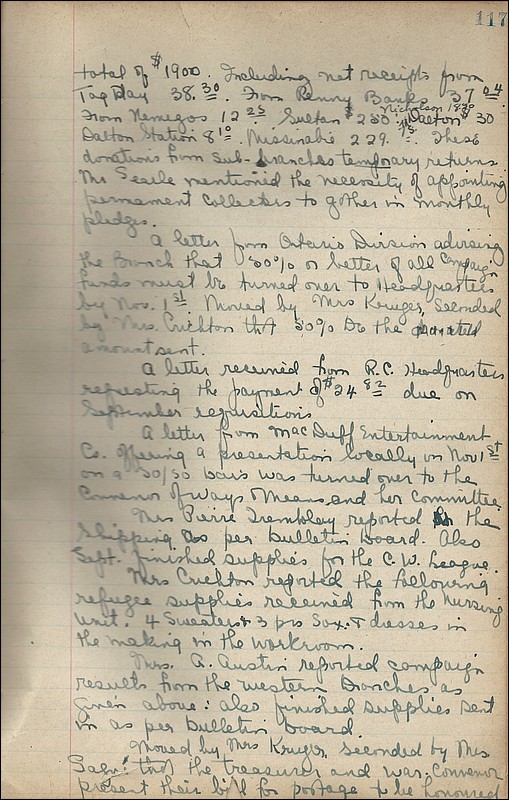 117
total of $1900. Including net receipts from
Tag Day 38.30. From Penny Bank 37.04.
From Nemegos 12.25 Sultan $250. Nicholson 18.30 Dalton $30
Dalton Station 8.10. Missinabie 229. These
donations from Sub-branches temporary returns.
Mr Searle mentioned the necessity of appointing
permament collectors to gather in monthly
pledges.
A letter from Ontario Division advising
the Branch that 50% or better of all Campaign
funds must be turned over to Headquarters
by Nov. 1st. Moved by Mrs Kruger, Seconded
by Mrs. Crichton that 50% be the
amount sent.
A letter received from R.C. Headquarters
requesting the payment of $24.82 due on
September requisitions
A letter from MacDuff Entertainment
Co. offering a presentation locally on Nov 1st
on a 50/50 basis was turned over to the
Convenor of Ways & Means and her Committee.
Mrs Pierre Tremblay reported the
Shipping as per bulletin board. Also
Sept. finished supplies for the C.W. League.
Mrs Crichton reported the following
refugee supplies received from the Nursing
Unit. 4 Sweaters & 3 prs Sox. & dresses in
the making in the workroom.
Mrs. A. Austin reported campaign
results from the western branches as
given above: also finished supplies sent
in as per bulletin board.
Moved by Mrs Kruger, seconded by Mrs
that the treasurer and war convenor
present their bill for postage to be honoured